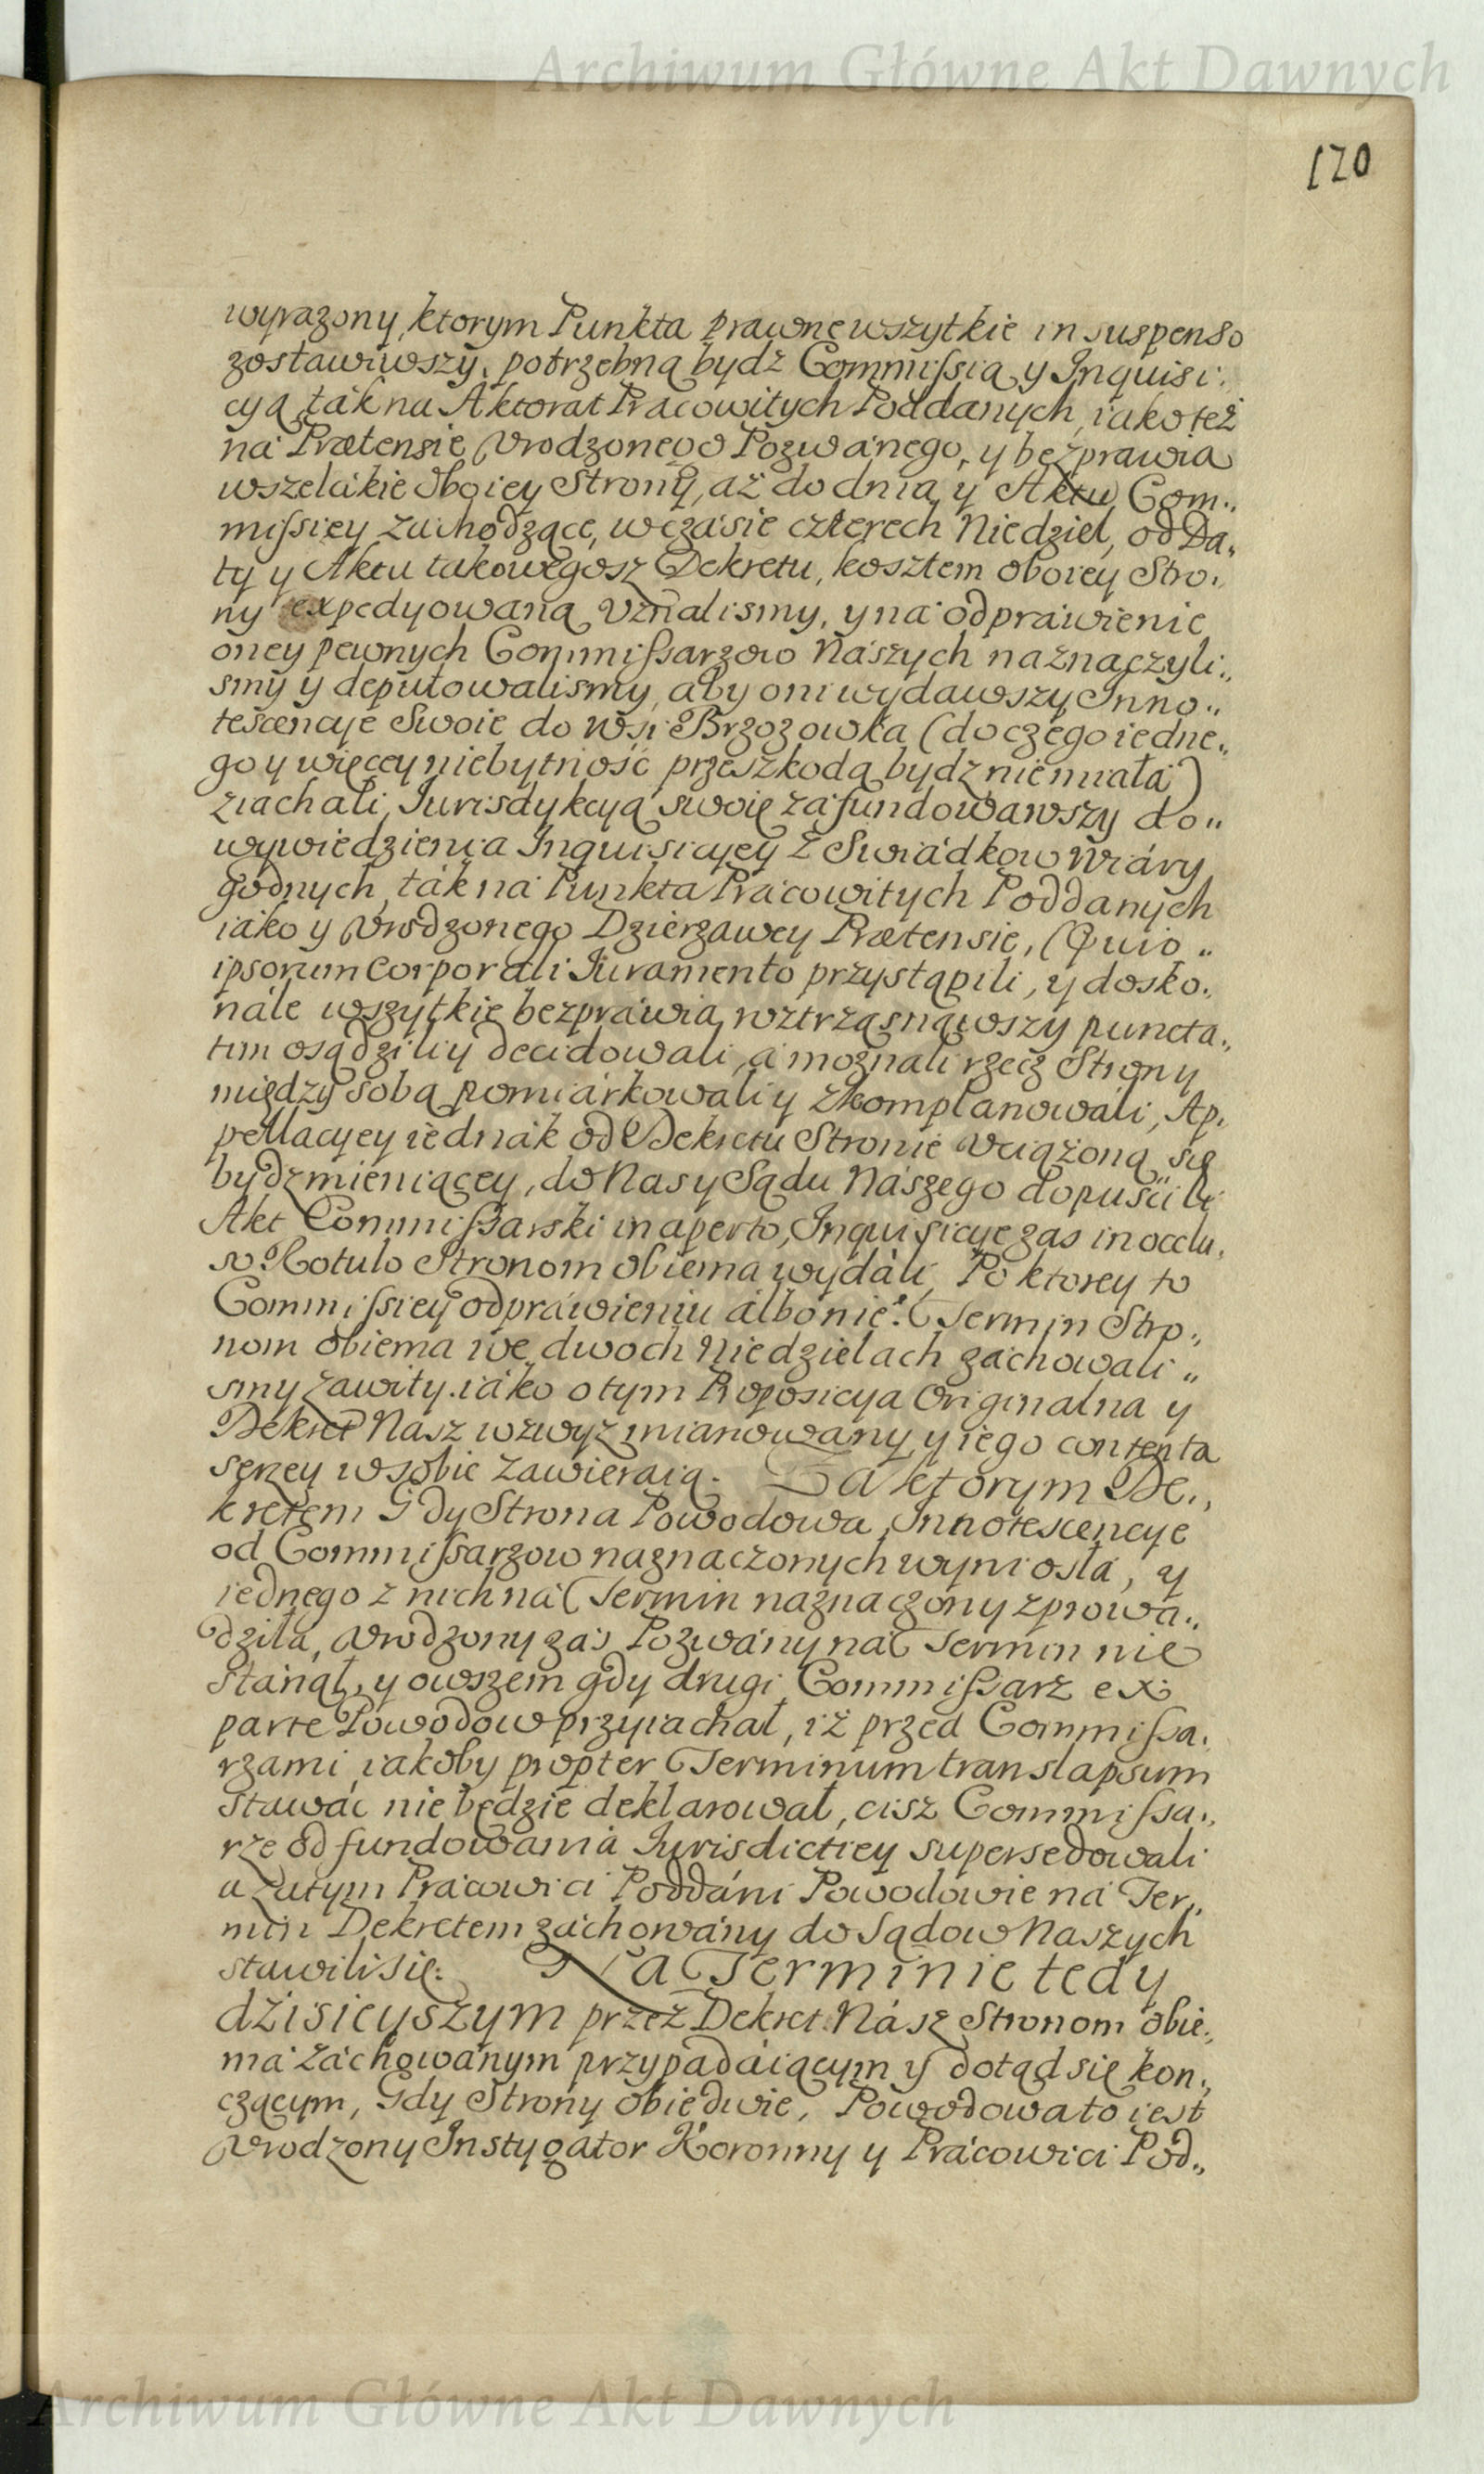 Archiwum Główne Akt Dawnych
120
wyrazony, ktorym Punkta prawne wszytkie in suspenso
zostawiwszy, potrzebną bydź Commissią y Inquisi„
cyą ták na Aktorat Pracowitych Poddanych, iako też
ná Prætensie Vrodzonego Pozwánego, y bezprawia
wszelákie oboiey Strony, aż do dnia y Aktu Com„
missiey zachodzące, w czásie czterech Niedziel, od Da„
ty y Aktu takowegosz Dekretu, kosztem oboiey Stro„
ny expedyowaną vznalismy, y ná odpráwienie
oney pewnych Commissarzow Nászych náznaczyli„
smy y deputowalismy, aby oni wydawszy Inno„
tescencyie Swoie do Wsi Brzozowka (do czego iedne„
go y więcey niebytność przeszkodą bydź nie miała)
ziachali, Iurisdykcyą swoię záfundowawszy do„
wywiedzienia Inquisicyey z Swiádkow wiáry
godnych, ták ná Punkta Pracowitych Poddanych
iáko y Vrodzonego Dzierzawcy Prætensie, (Quio„
ipsorum Corporali Iuramento przystąpili, y dosko„
nále wszytkie bezpráwia, wztrząsnąwszy puncta„
tim osądzili y decidowali, á możnali rzecz Strony
między sobą pomiárkowali y zkomplanowáli, Ap„
pellacyey iednák od Dekretu Stronie vciążoną się
bydź mieniącey, do Nas y Sądu Nászego dopuścili
Akt Commissarski in aperto, Inquisicye zas in occlu„
so Rotulo Stronom obiema wydáli, Po ktorey to
Commissiey odpráwieniu álbo nie: Termin Stro„
nom obiema we dwoch Niedzielach záchowali„
smy zawity. iáko o tym Proposicya Originalna y
Dekret Nasz wzwyż mianowany, y iego contenta
szerzey w sobie zawieraią. Za ktorym De„
kretem Gdy Strona Powodowa, Innotescencye
od Commissarzow naznaczonych wyniosłá, y
iednego z nich ná Termin naznaczony zprowa„
dziłá, Vrodzony zaś Pozwány ná Termin nie
stánął, y owszem gdy drugi Commissarz ex
parte Powodow przyiachał, iż przed Commissa„
rzami, iakoby propter Terminum translapsum
stawáć nie będzie deklarował, cisz Commissa„
rze od fundowániá Iurisdictiey supersedowali
a zatym Prácowici Poddáni Powodowie ná Ter„
min Dekretem záchowány do Sądow Nászych
stawili się: Na Terminie tedy
dzisieyszym przez Dekret Nász Stronom obie„
má záchowánym przypadáiącym y dotąd się kon„
czącym, Gdy Strony obiedwie, Powodowa to iest
Vrodzony Instygátor Koronny y Prácowici Pod„
Archiwum Główne Akt Dawnych